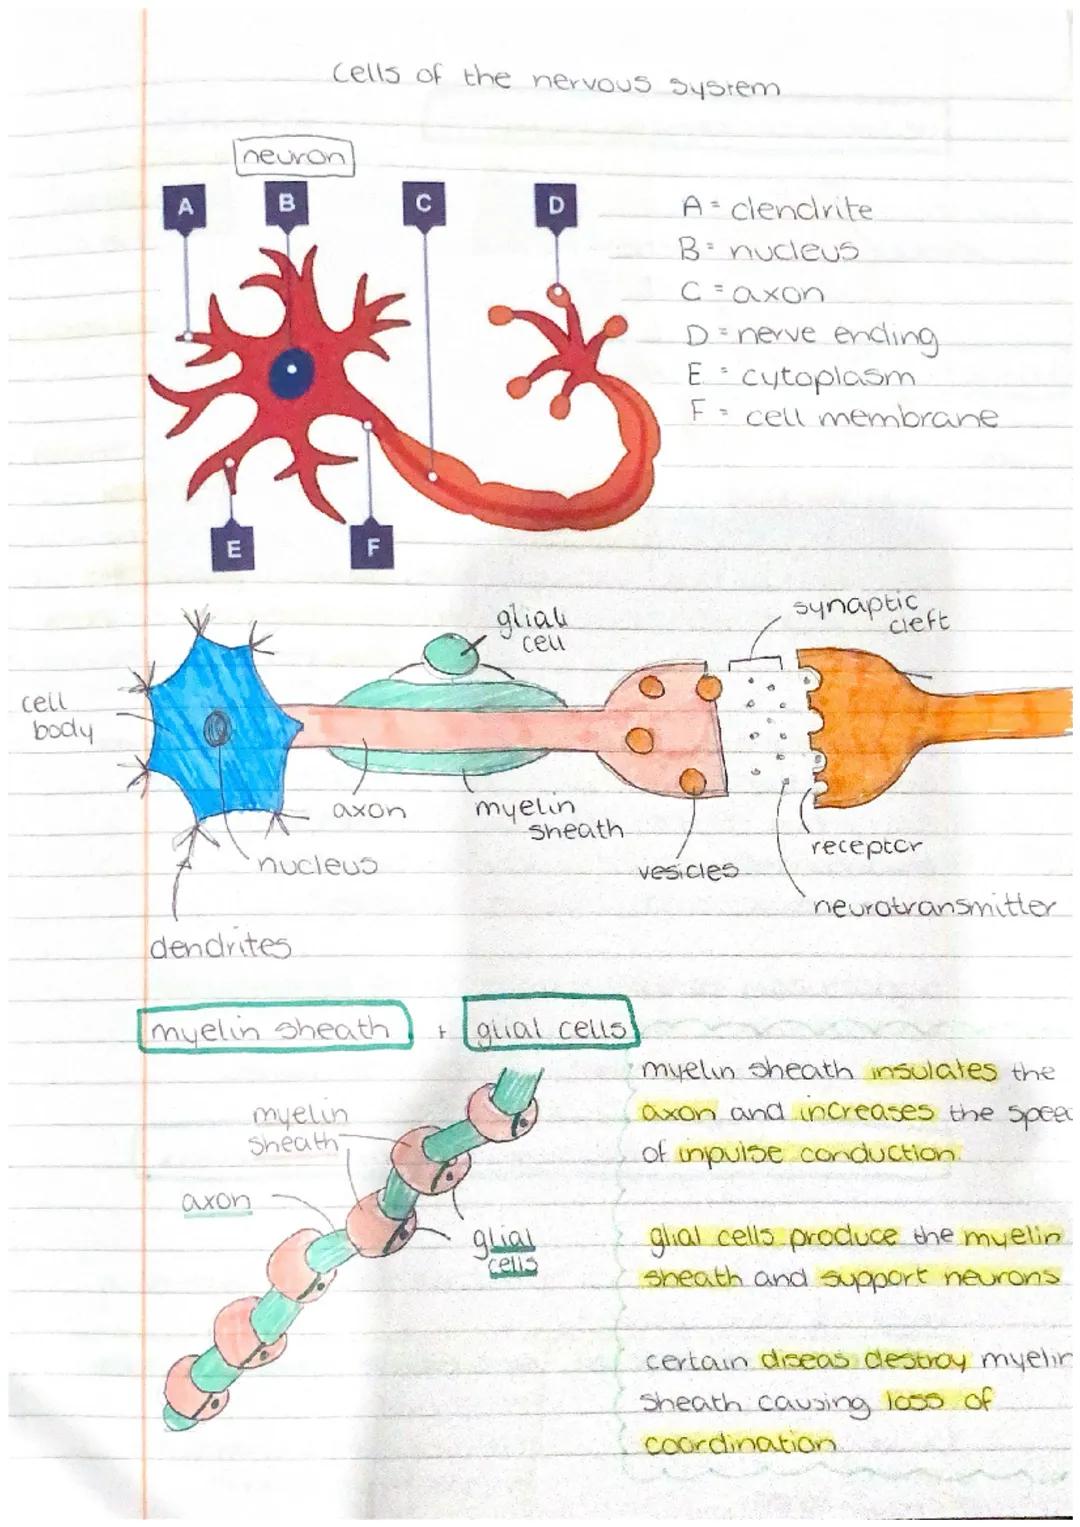 cells of the nervous system
neuron
A
B
C
D
A = dendrite
B = nucleus
C = axon
D = nerve ending
E = cytoplasm
F = cell membrane
E
F
glial
cell
synaptic
cleft
cell
body
axon
myelin
sheath
nucleus
vesicles
receptor
neurotransmitter
dendrites
myelin sheath + glial cells
myelin sheath insulates the
axon and increases the spee
of impulse conduction
myelin
sheath
axon
glial
cells
glial cells produce the myelin
sheath and support neurons
certain diseas destroy myelin
sheath causing loss of
coordination